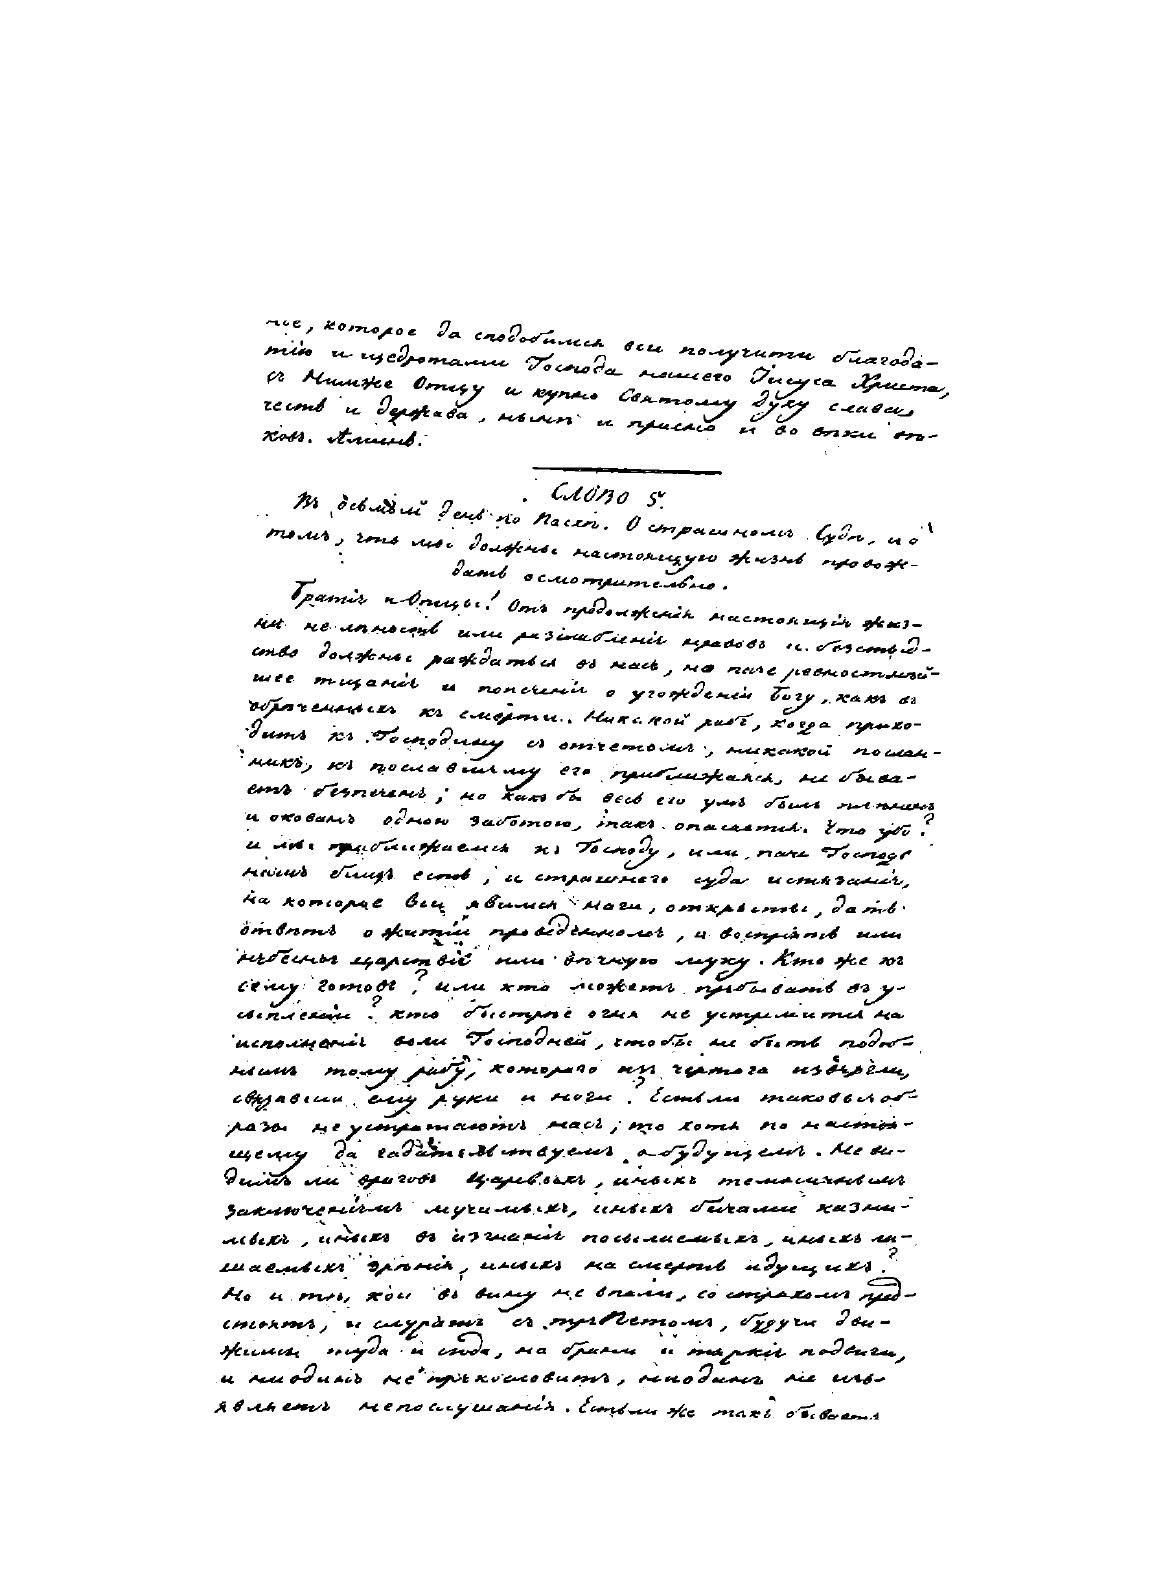 ное, которое да сподобимся вси получити благода-
тію и щедротами Господа нашего Іисуса Христа,
съ Нимже Отцу и купно Святому Духу слава,
честь и держава, нынѣ и присно и во вѣки вѣ-
ковъ. Аминь.
СЛОВО 5.
Въ девятый день по Пасхѣ. О страшномъ Судѣ, и о
томъ, что мы должны настоящую жизнь провож-
дать осмотрительно.
Братія и Отцы! Отъ продолженія настоящія жиз-
ни не лѣность или разслабленіе нравовъ и безстыд-
ство должны раждаться въ насъ, но паче ревностнѣй-
шее тщаніе и попеченіе о угожденіи Богу, какъ въ
обреченныхъ къ смерти. Никакой рабъ, когда прихо-
дитъ къ Господину съ отчетомъ, никакой послан-
никъ, къ пославшему его приближаяся, не быва-
етъ безпеченъ; но какъ бы весь его умъ былъ плѣненъ
и окованъ одною заботою, такъ опасается. Что убо?
и мы приближаемся къ Господу, или паче Господь
намъ близъ есть, и страшнаго суда истязаніе,
на которое вси явимся наги, открыты, дать
отвѣтъ о житіи проведенномъ, и воспріять или
небесныя царствіе или вѣчную муку. Кто же къ
сему готовъ? или кто можетъ пребывать въ у-
сыпленіи? кто быстрѣе огня не устремится на
исполненіе воли Господней, чтобы не быть подоб-
нымъ тому рабу, котораго изъ чертога извергли,
связавши ему руки и ноги? Естьли таковыя об-
разы не устрашаютъ насъ; то хотя по настоя-
щему да гадательствуемъ о будущемъ. Не ви-
димъ ли враговъ Царевыхъ, иныхъ темничнымъ
заключеніемъ мучимыхъ, иныхъ бичами казни-
мыхъ, иныхъ въ изгнаніе посылаемыхъ, иныхъ ли-
шаемыхъ зрѣнія, иныхъ на смерть идущихъ?
Но и тѣ, кои въ вину не впали, со страхомъ пред-
стоятъ, и служатъ съ трепетомъ, будучи дви-
жимы туда и сюда, на брани и тяжкіе подвиги,
и ниодинъ не прекословитъ, ниодинъ не изъ-
являетъ непослушанія. Естьли же такъ бываетъ